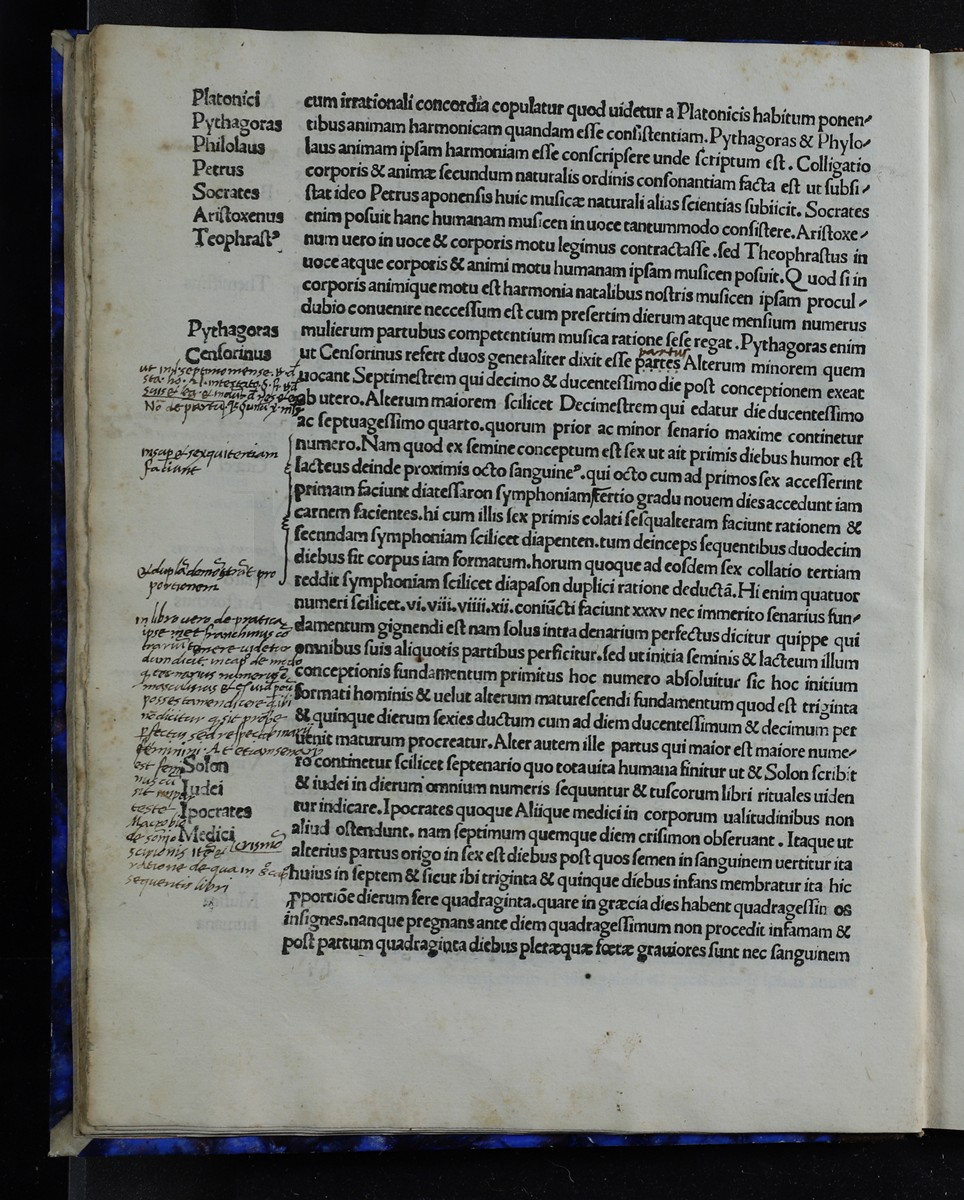 Platonici
Pythagoras
Philolaus
Petrus
Socrates
Ariſtoxenus
Teophraſtꝰ
cum irrationali concordia copulatur quod uidetur a Platonicis habitum ponen⸗
tibus animam harmonicam quandam eſſe conſiſtentiam. Pythagoras & Phylo⸗
laus animam ipſam harmoniam eſſe conſcripſere unde ſcriptum eſt. Colligatio
corporis & animæ ſecundum naturalis ordinis conſonantiam facta eſt ut ſubſi⸗
ſtat ideo Petrus aponenſis huic muſicæ naturali alias ſcientias ſubiicit. Socrates
enim poſuit hanc humanam muſicen in uoce tantummodo conſiſtere. Ariſtoxe⸗
num uero in uoce & corporis motu legimus contractaſſe. ſed Theophraſtus in
uoce atque corporis & animi motu humanam ipſam muſicen poſuit. Quod ſi in
corporis animique motu eſt harmonia natalibus noſtris muſicen ipſam procul⸗
dubio conuenire necceſſum eſt cum preſertim dierum atque menſium numerus
Pythagoras
Cenſorinus
mulierum partubus competentium muſica ratione ſeſe regat. Pythagoras enim
partus
ut Cenſorinus refert duos genetaliter dixit eſſe partes Alterum minorem quem
uocant Septimeſtrem qui decimo & ducenteſſimo die poſt conceptionem exeat
ab utero. Alterum maiorem ſcilicet Decimeſtrem qui edatur die ducenteſſimo
ac ſeptuageſſimo quarto. quorum prior ac minor ſenario maxime continetur
numero. Nam quod ex ſemine conceptum eſt ſex ut ait primis diebus humor eſt
lacteus deinde proximis octo ſanguineꝰ. qui octo cum ad primos ſex acceſſerint
primam faciunt diateſſaron ſymphoniam tertio gradu nouem dies accedunt iam
carnem facientes. hi cum illis ſex primis colati ſeſqualteram faciunt rationem &
ſeenndam ſymphoniam ſcilicet diapenten. tum deinceps ſequentibus duodecim
diebus fit corpus iam formatum. horum quoque ad eoſdem ſex collatio tertiam
reddit ſymphoniam ſcilicet diapaſon duplici ratione deductã. Hi enim quatuor
numeri ſcilicet. vi. viii. viiii. xii. coniũcti faciunt xxxv nec immerito ſenarius fun⸗
damentum gignendi eſt nam ſolus intra denarium perfectus dicitur quippe qui
omnibus ſuis aliquotis partibus perficitur. ſed ut initia ſeminis & lacteum illum
conceptionis fundamentum primitus hoc numero abſoluitur ſic hoc initium
formati hominis & uelut alterum matureſcendi fundamentum quod eſt triginta
& quinque dierum ſexies ductum cum ad diem ducenteſſimum & decimum per
uenit maturum procreatur. Alter autem ille partus qui maior eſt maiore nume⸗
ro continetur ſcilicet ſeptenario quo totauita humana finitur ut & Solon ſcribit
& iudei in dierum omnium numeris ſequuntur & tuſcorum libri rituales uiden
tur indicare. Ipocrates quoque Aliique medici in corporum ualitudinibus non
aliud oſtendunt. nam ſeptimum quemque diem criſimon obſeruant. Itaque ut
alterius partus origo in ſex eſt diebus poſt quos ſemen in ſanguinem uertitur ita
huius in ſeptem & ſicut ibi triginta & quinque diebus infans membratur ita hic
ꝓportiõe dierum fere quadraginta. quare in græcia dies habent quadrageſſin os
inſignes. nanque pregnans ante diem quadrageſſimum non procedit infamam &
poſt partum quadraginta diebus pleræquæ fœtæ grauiores ſunt nec ſanguinem
faciunt
porcionem
in libro uero de pratica
Solon
Iudei
Ipocrates
Medici
criſimo
sequentis libri